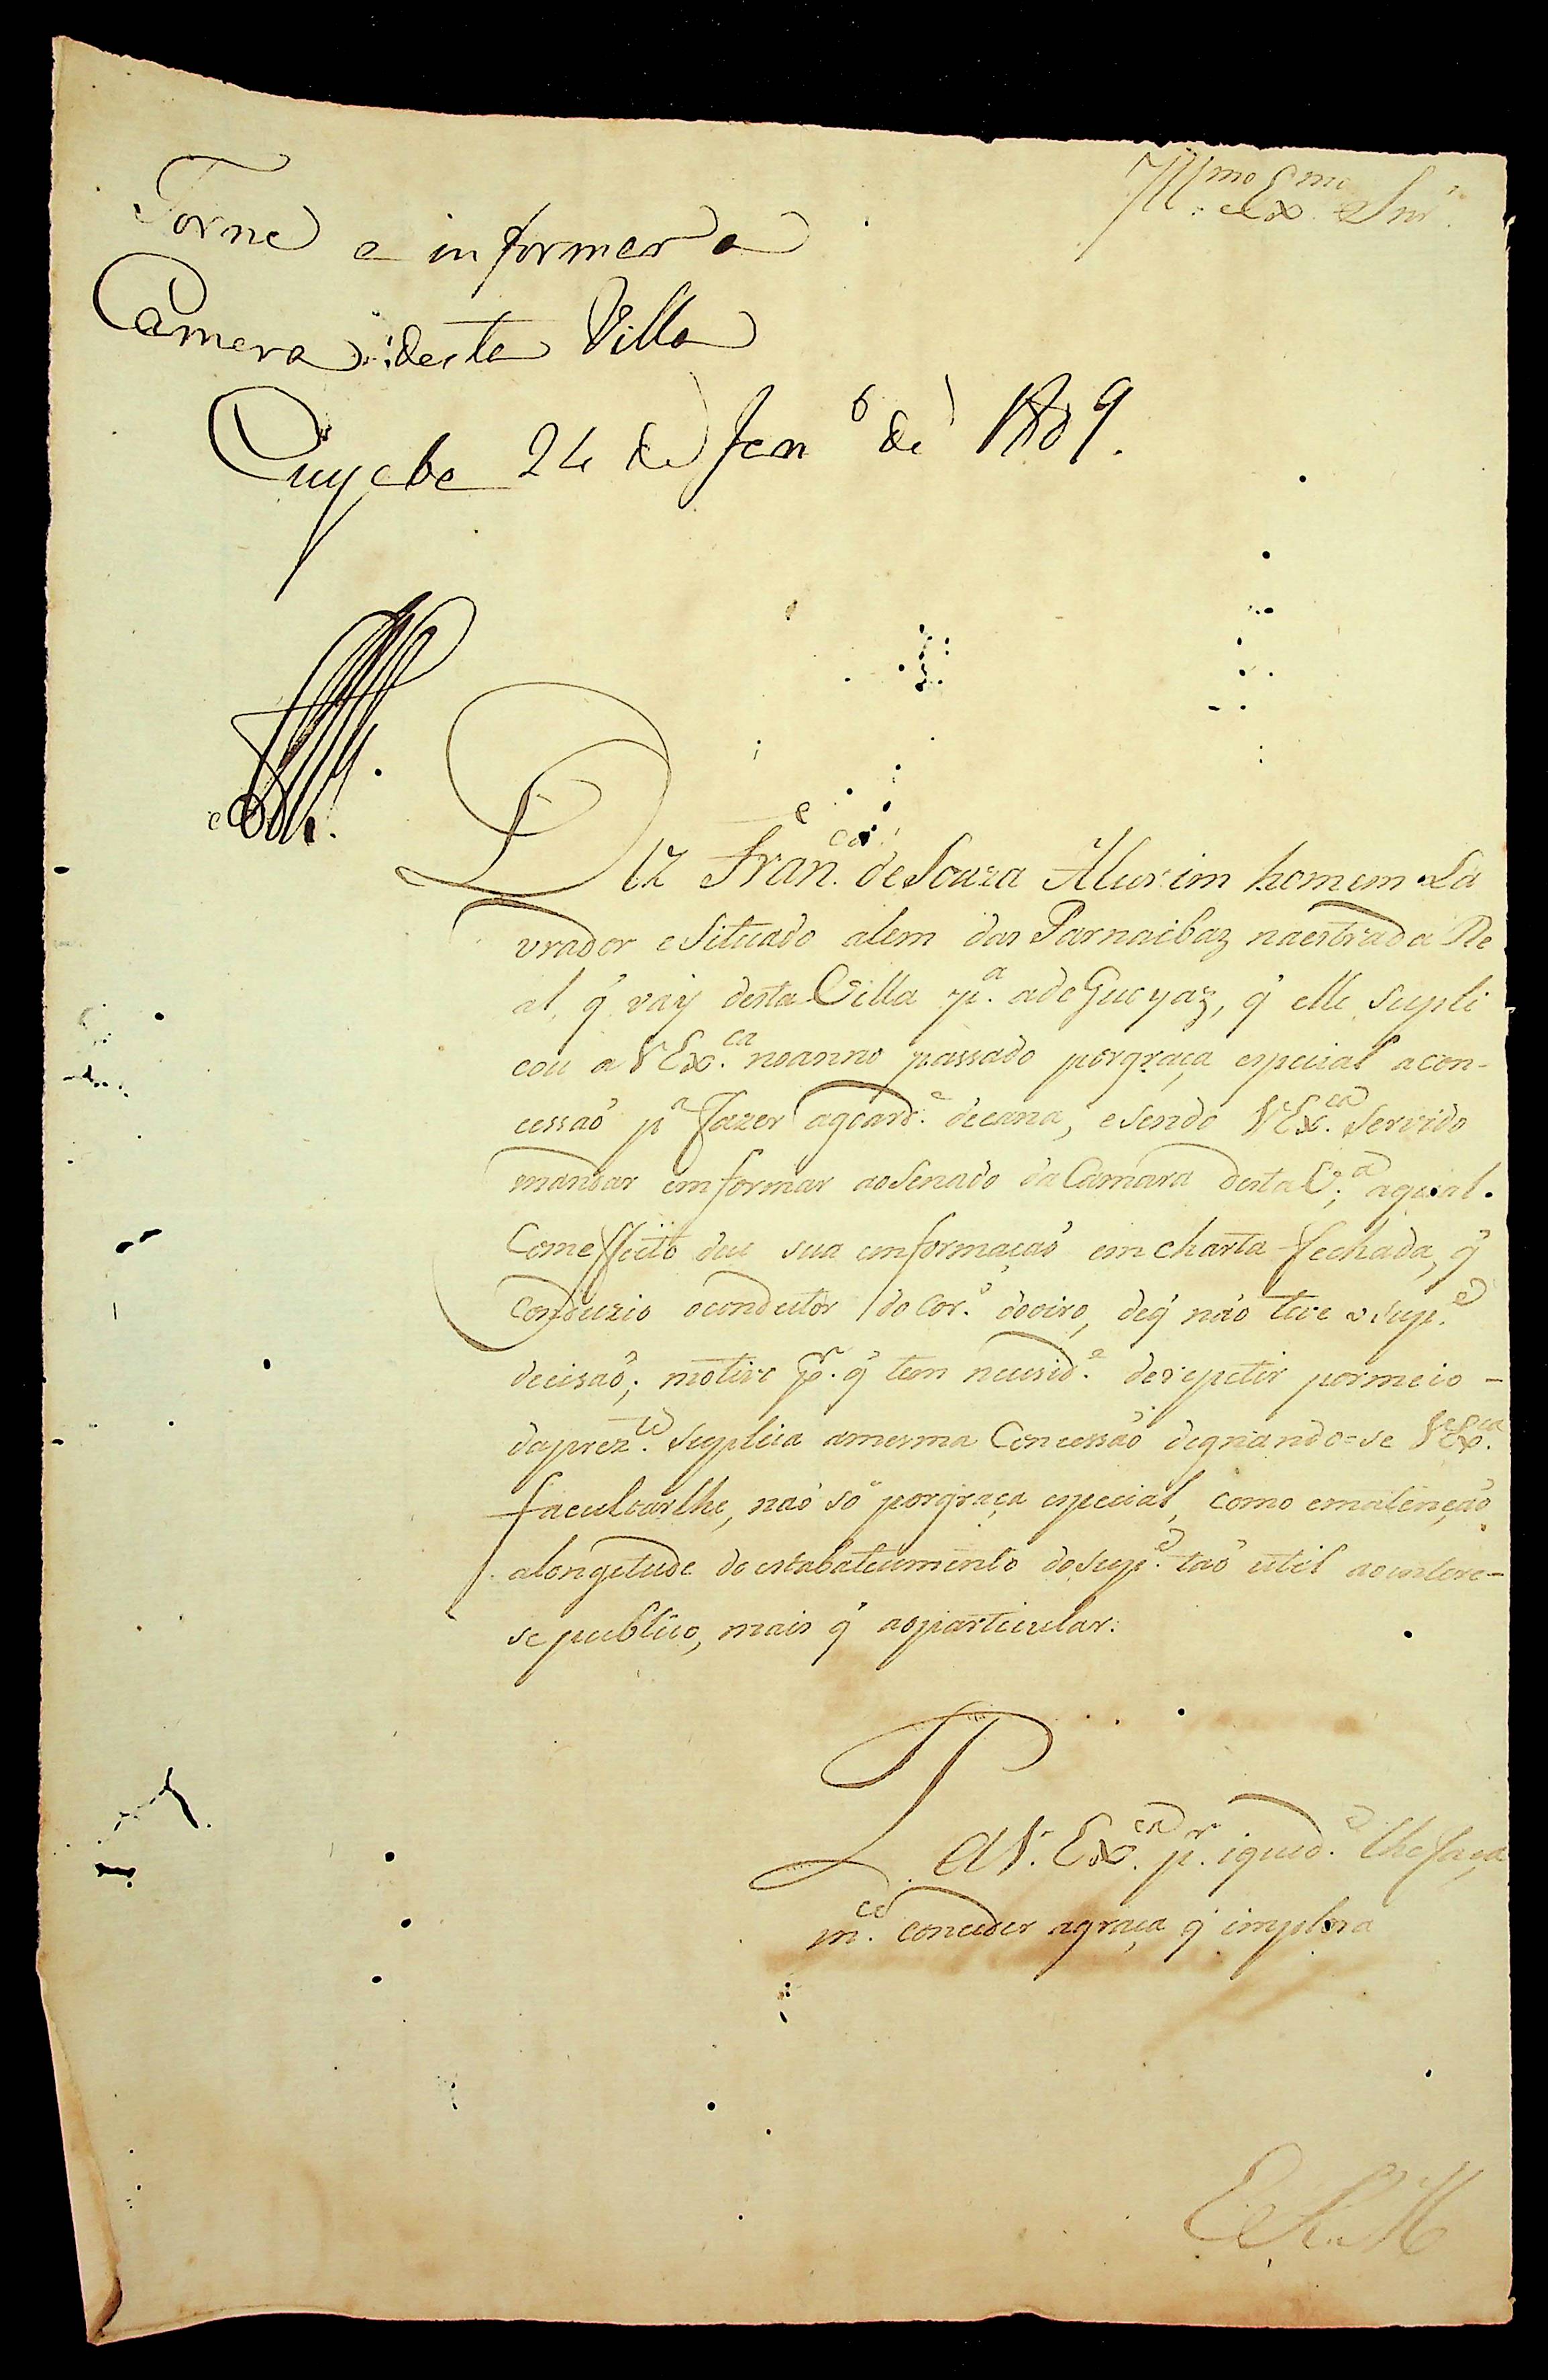 Torne a informar a
Camera desta Villa
Cuyaba 24 de Jan.º de 1809.
Ill.mo e Ex.mo Snr.
Diz Fran.co de Souza Alurim homem La
vrador e Situado alem das Parnaibaz na estrada Re
al, q̃ vay desta Villa p.a a de Guoyaz, q̃ elle Supli
cou a V Ex.ca no anno passado por graça especial a con-
cessaõ p.a fazer agoard.e de cana, e sendo V Ex.ca Servido
mandar emformar ao Senado da Camara desta V.a aqual.
Comeffeito deu sua emformaçaõ em charta fechada, q̃
Conduzio o condutor do Cor.o do oiro, de q̃ naõ teve o Sup.e
decisaõ; motivo p.r q̃ tem necesid.e de repetir por meio -
da prez.te Suplica a mesma Concessaõ dignando=se V Ex.ca
facultarlhe, naõ só por graça especial, como em atençaõ
a longetude do estabalecimento do Sup.e taõ util ao intere-
se publico, mais q̃ ao particular.
P
a V. Ex.ca p.r iqued.e lhe faça
m.ce conceder a graça q̃ implora
E. R. M